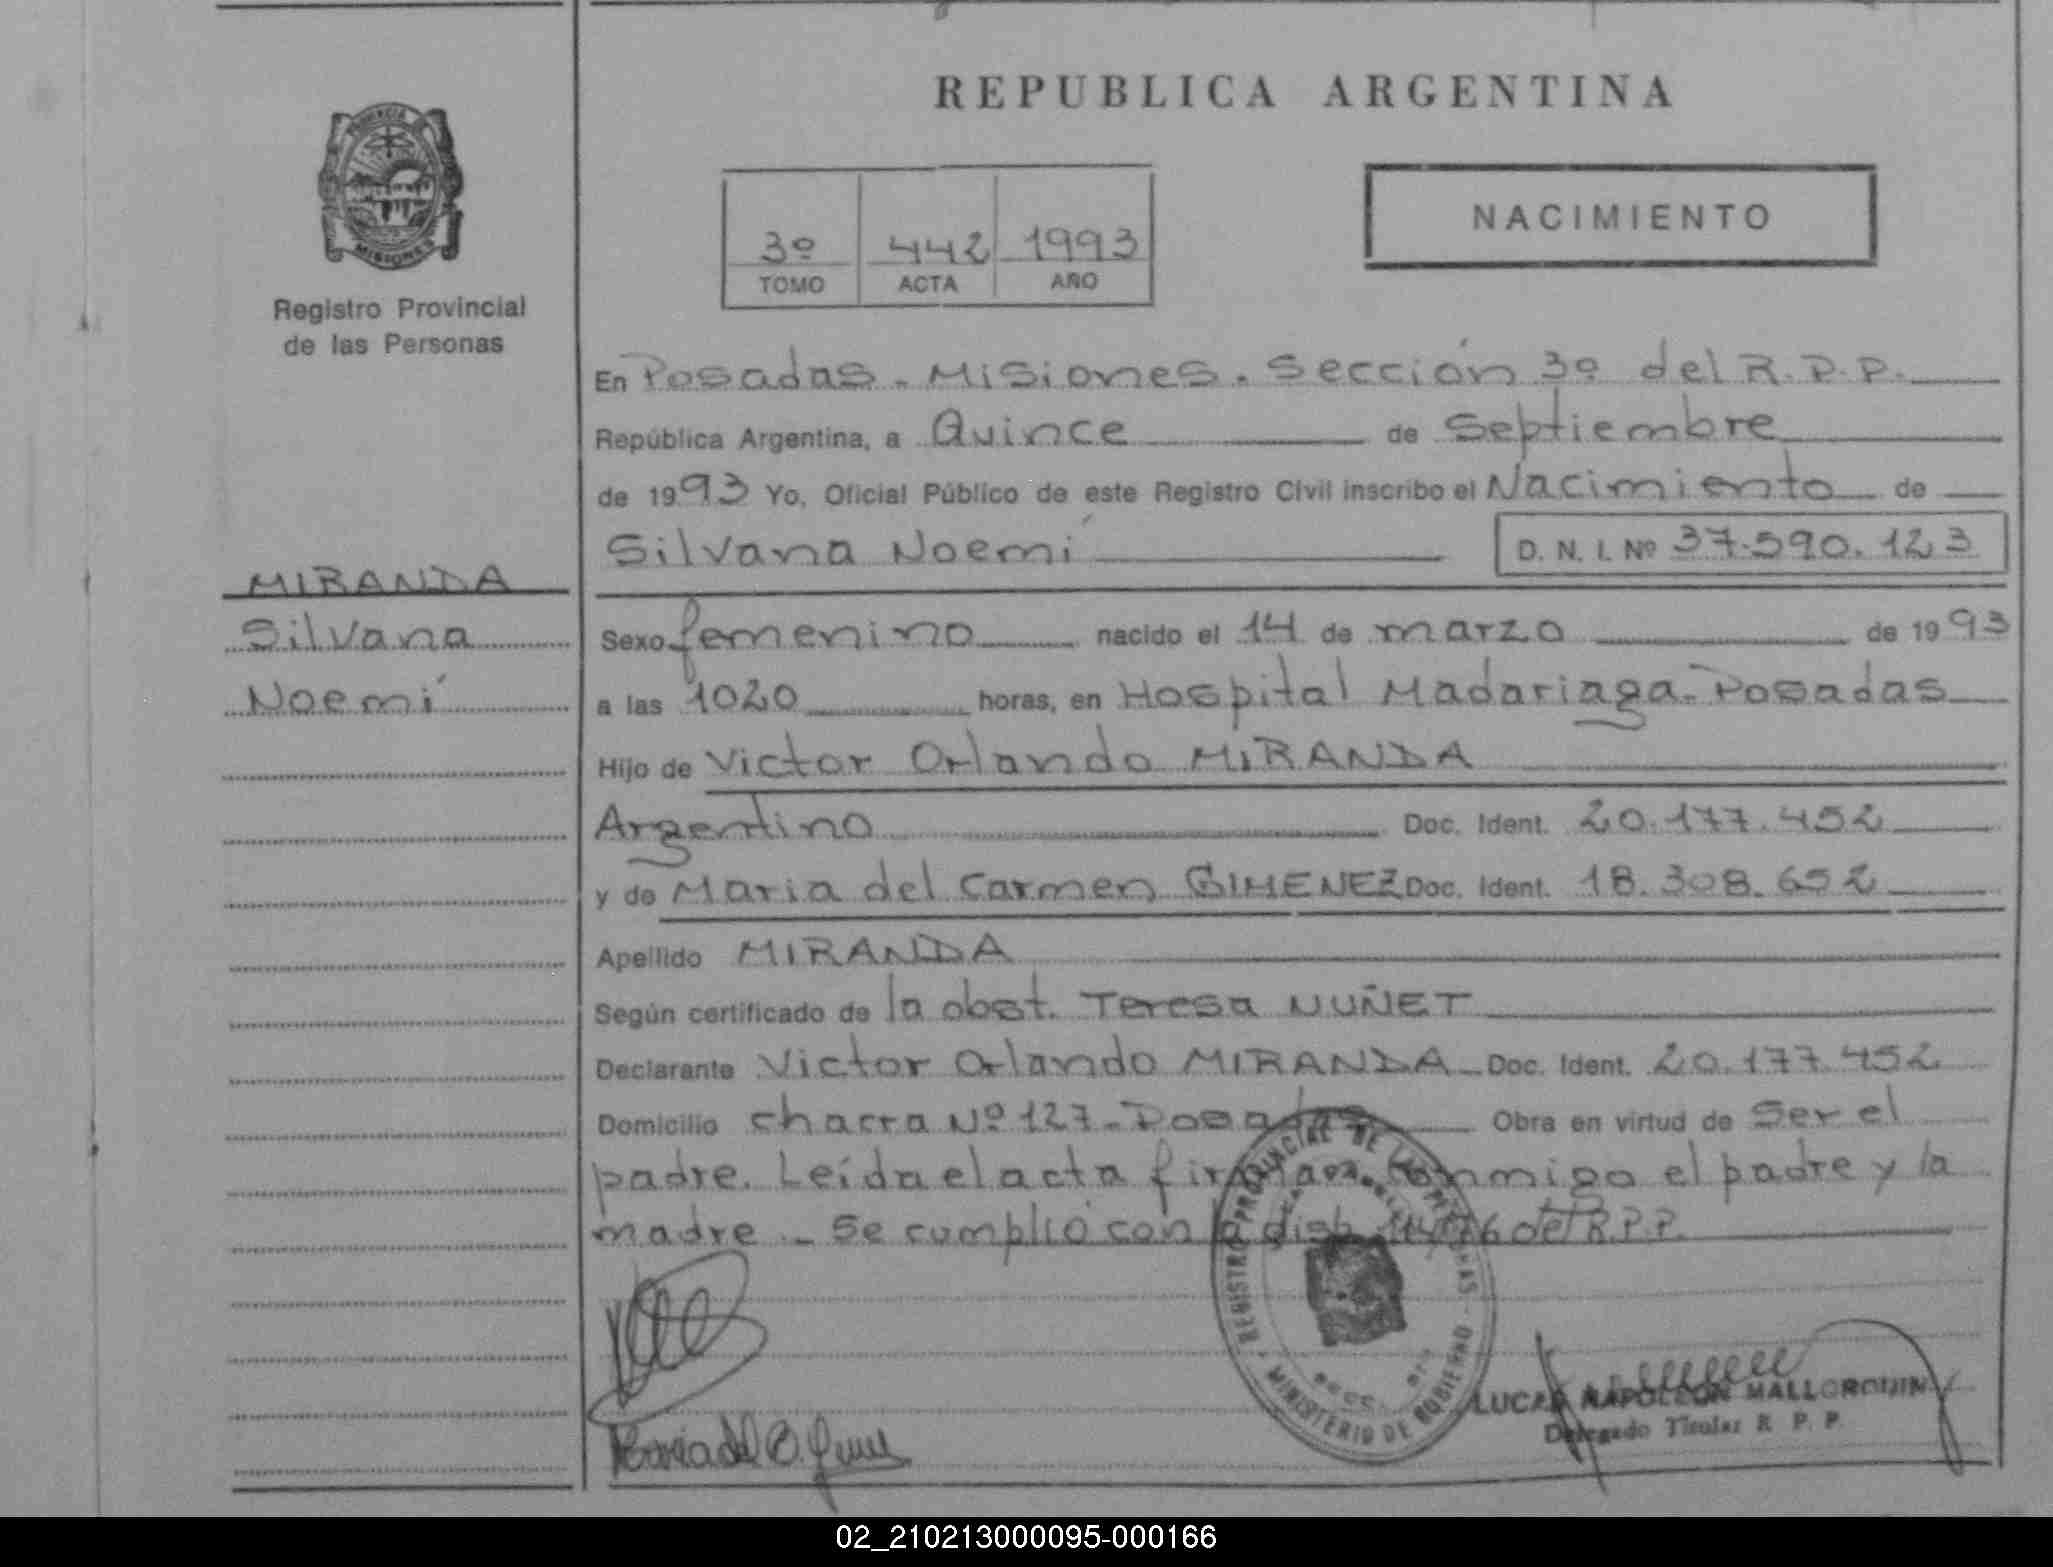 REPUBLICA ARGENTINA
PROVINCIA
MISIONES
Registro Provincial
de las Personas
3º 442 1993
TOMO ACTA AÑO
NACIMIENTO
En Posadas - Misiones. Sección 3º del R.P.P.
República Argentina, a Quince de Septiembre
de 1993 Yo, Oficial Público de este Registro Civil inscribo el Nacimiento de
Silvana Noemí D. N. I. Nº 37.590.123
MIRANDA
Silvana
Noemí
Sexo femenino nacido el 14 de marzo de 1993
a las 1020 horas, en Hospital Madariaga - Posadas
Hijo de Victor Orlando MIRANDA
Argentino Doc. Ident. 20.177.452
y de Maria del Carmen GIMENEZ Doc. Ident. 18.308.652
Apellido MIRANDA
Según certificado de la obst. Teresa NUÑET
Declarante Victor Orlando MIRANDA - Doc. Ident. 20.177.452
Domicilio chacra Nº 127 - Posadas Obra en virtud de Ser el
padre. Leída el acta firman conmigo el padre y la
madre - Se cumplió con la disp. 14/76 del R.P.P.
REGISTRO PROVINCIAL DE LAS PERSONAS
MINISTERIO DE GOBIERNO
LUCAS NAPOLEON MALLORQUIN
Delegado Titular R. P. P.
Maria del C.
02_210213000095-000166